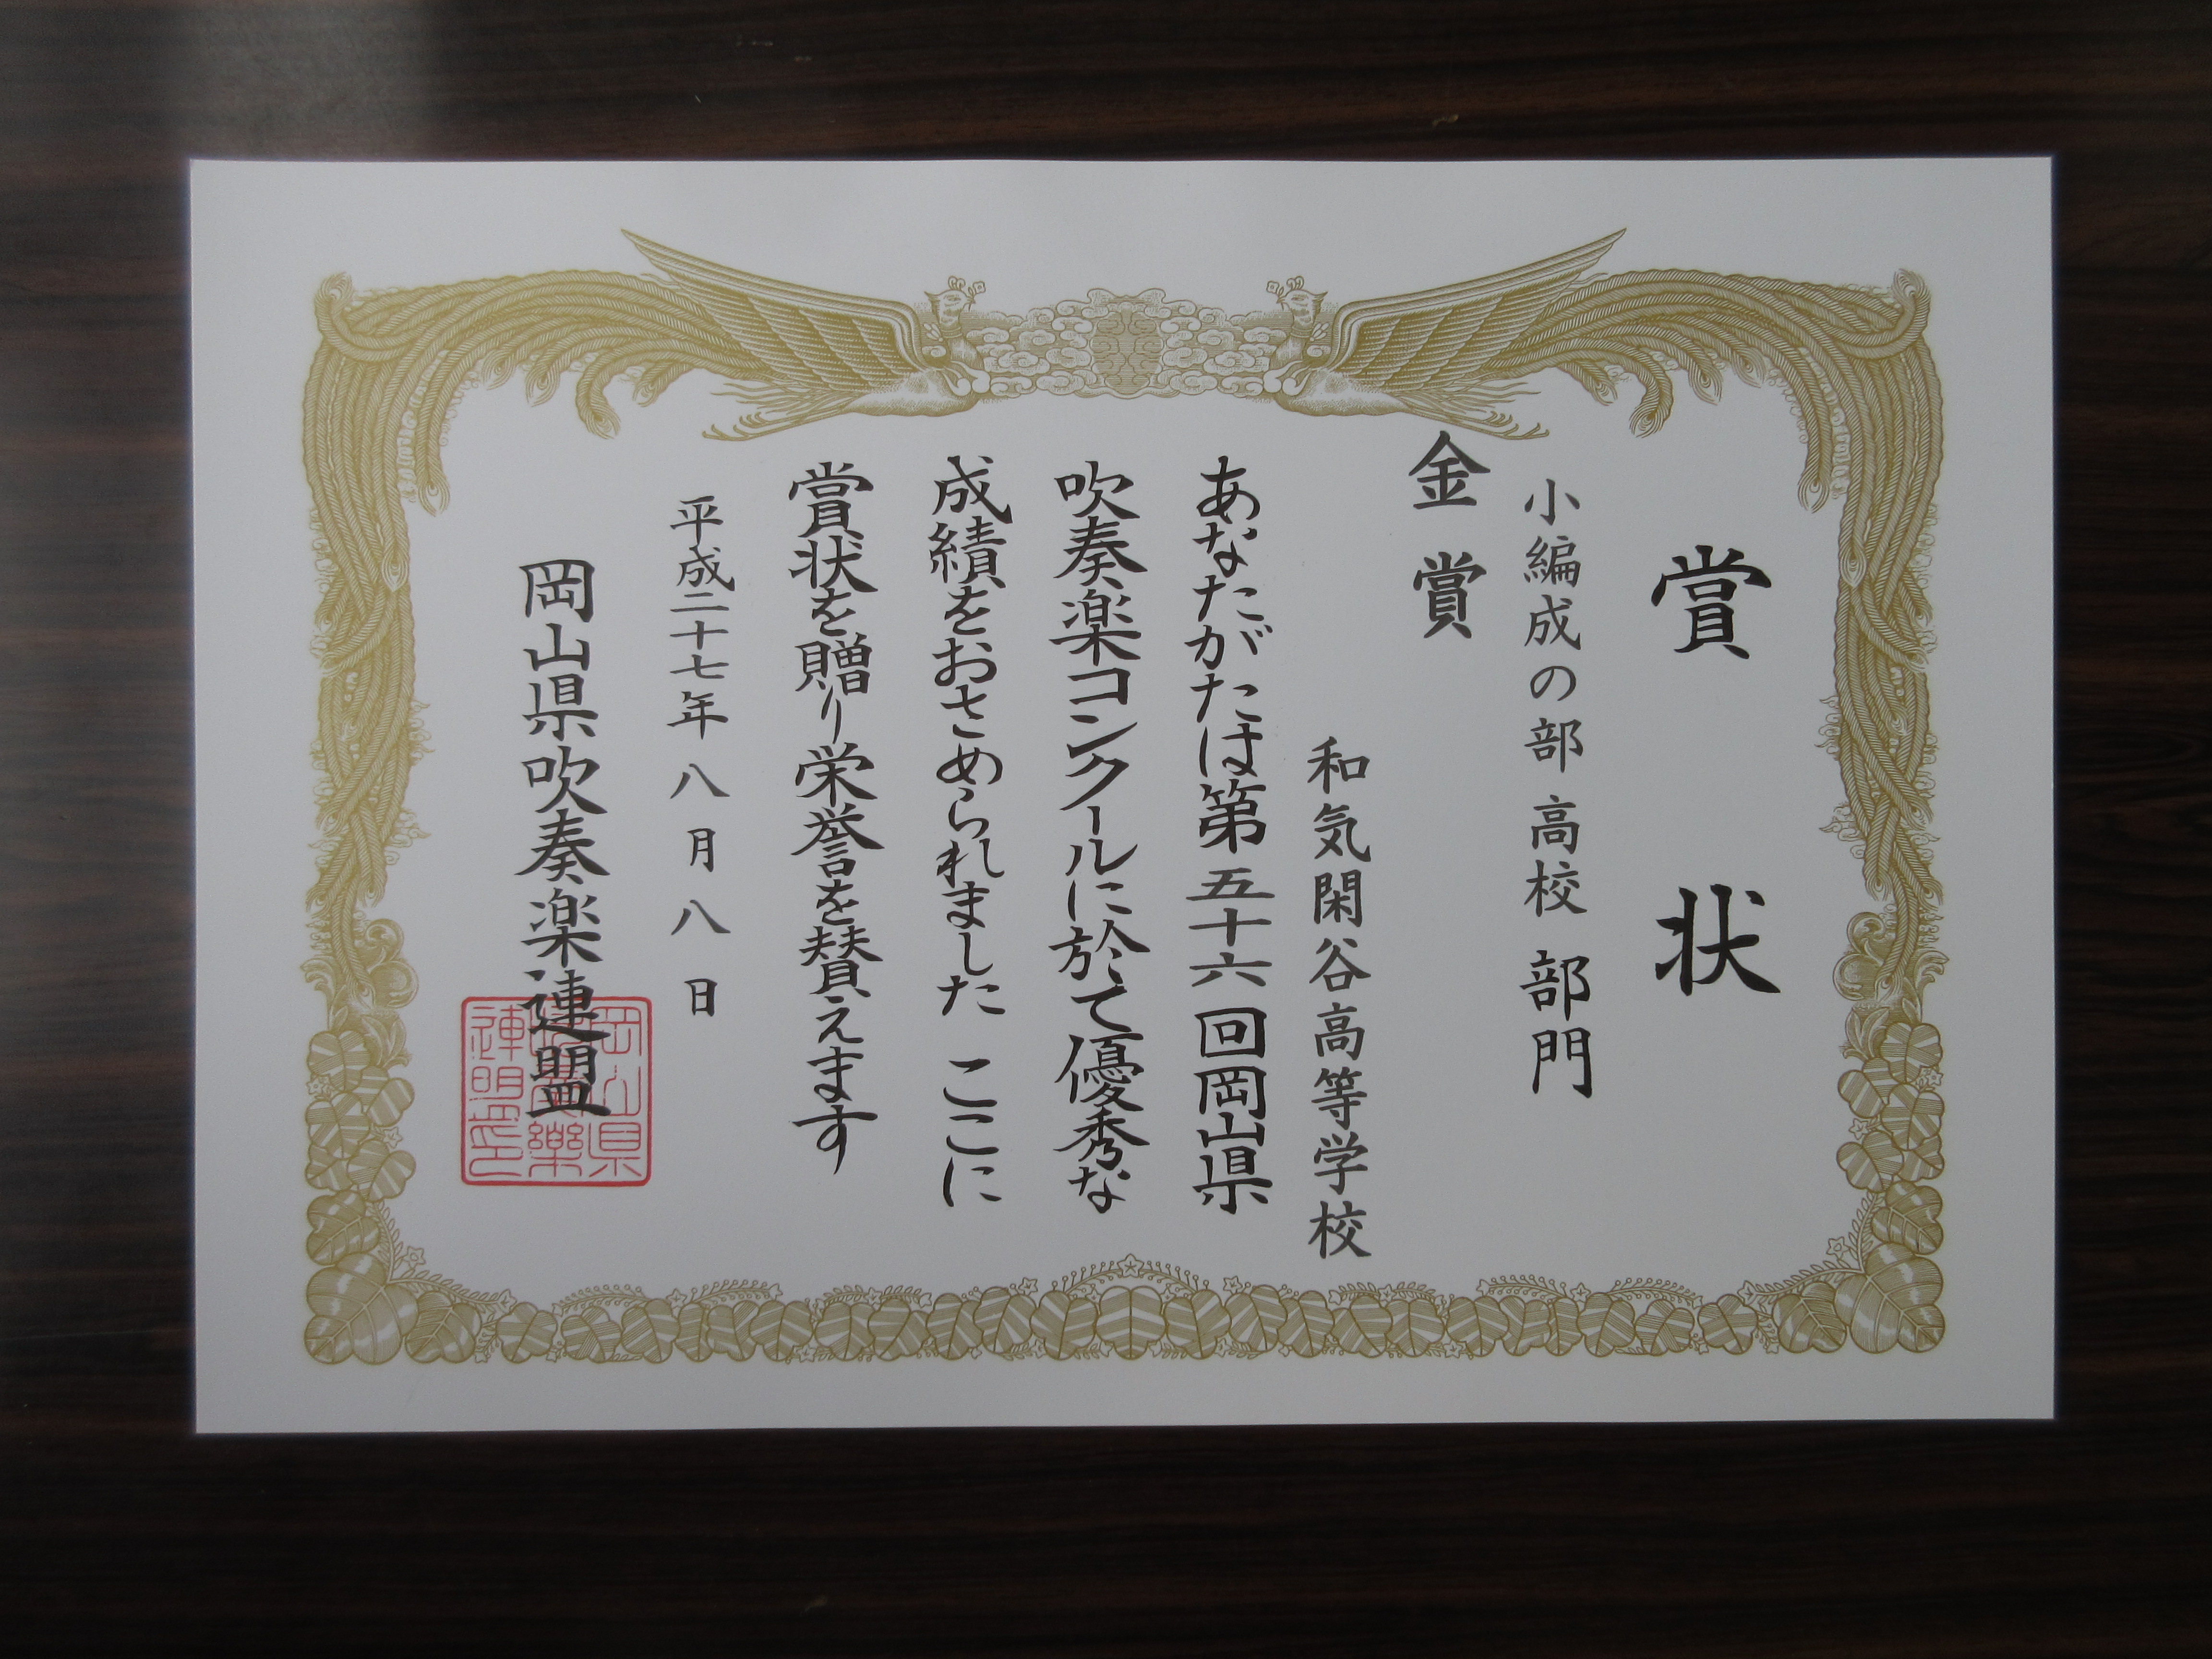 賞状
小編成の部 高校 部門
金賞
和気閑谷高等学校
あなたがたは第五十六回岡山県
吹奏楽コンクールに於て優秀な
成績をおさめられました ここに
賞状を贈り栄誉を賛えます
平成二十七年八月八日
岡山県吹奏楽連盟
岡山県
吹奏樂
連明盟印